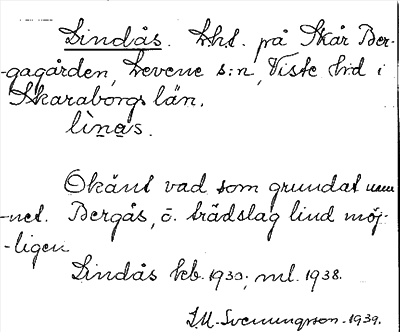 Lindås. Lht. på Skår Ber-
-gagården, Levene s:n, Viste hd i
Skaraborgs län.
lìnas.
Okänt vad som grundat nam-
-net. Bergås, ö. trädslag lind möj-
-ligen
Lindås beb. 1930; ml. 1938.
S.M. Svenungsson. 1939.